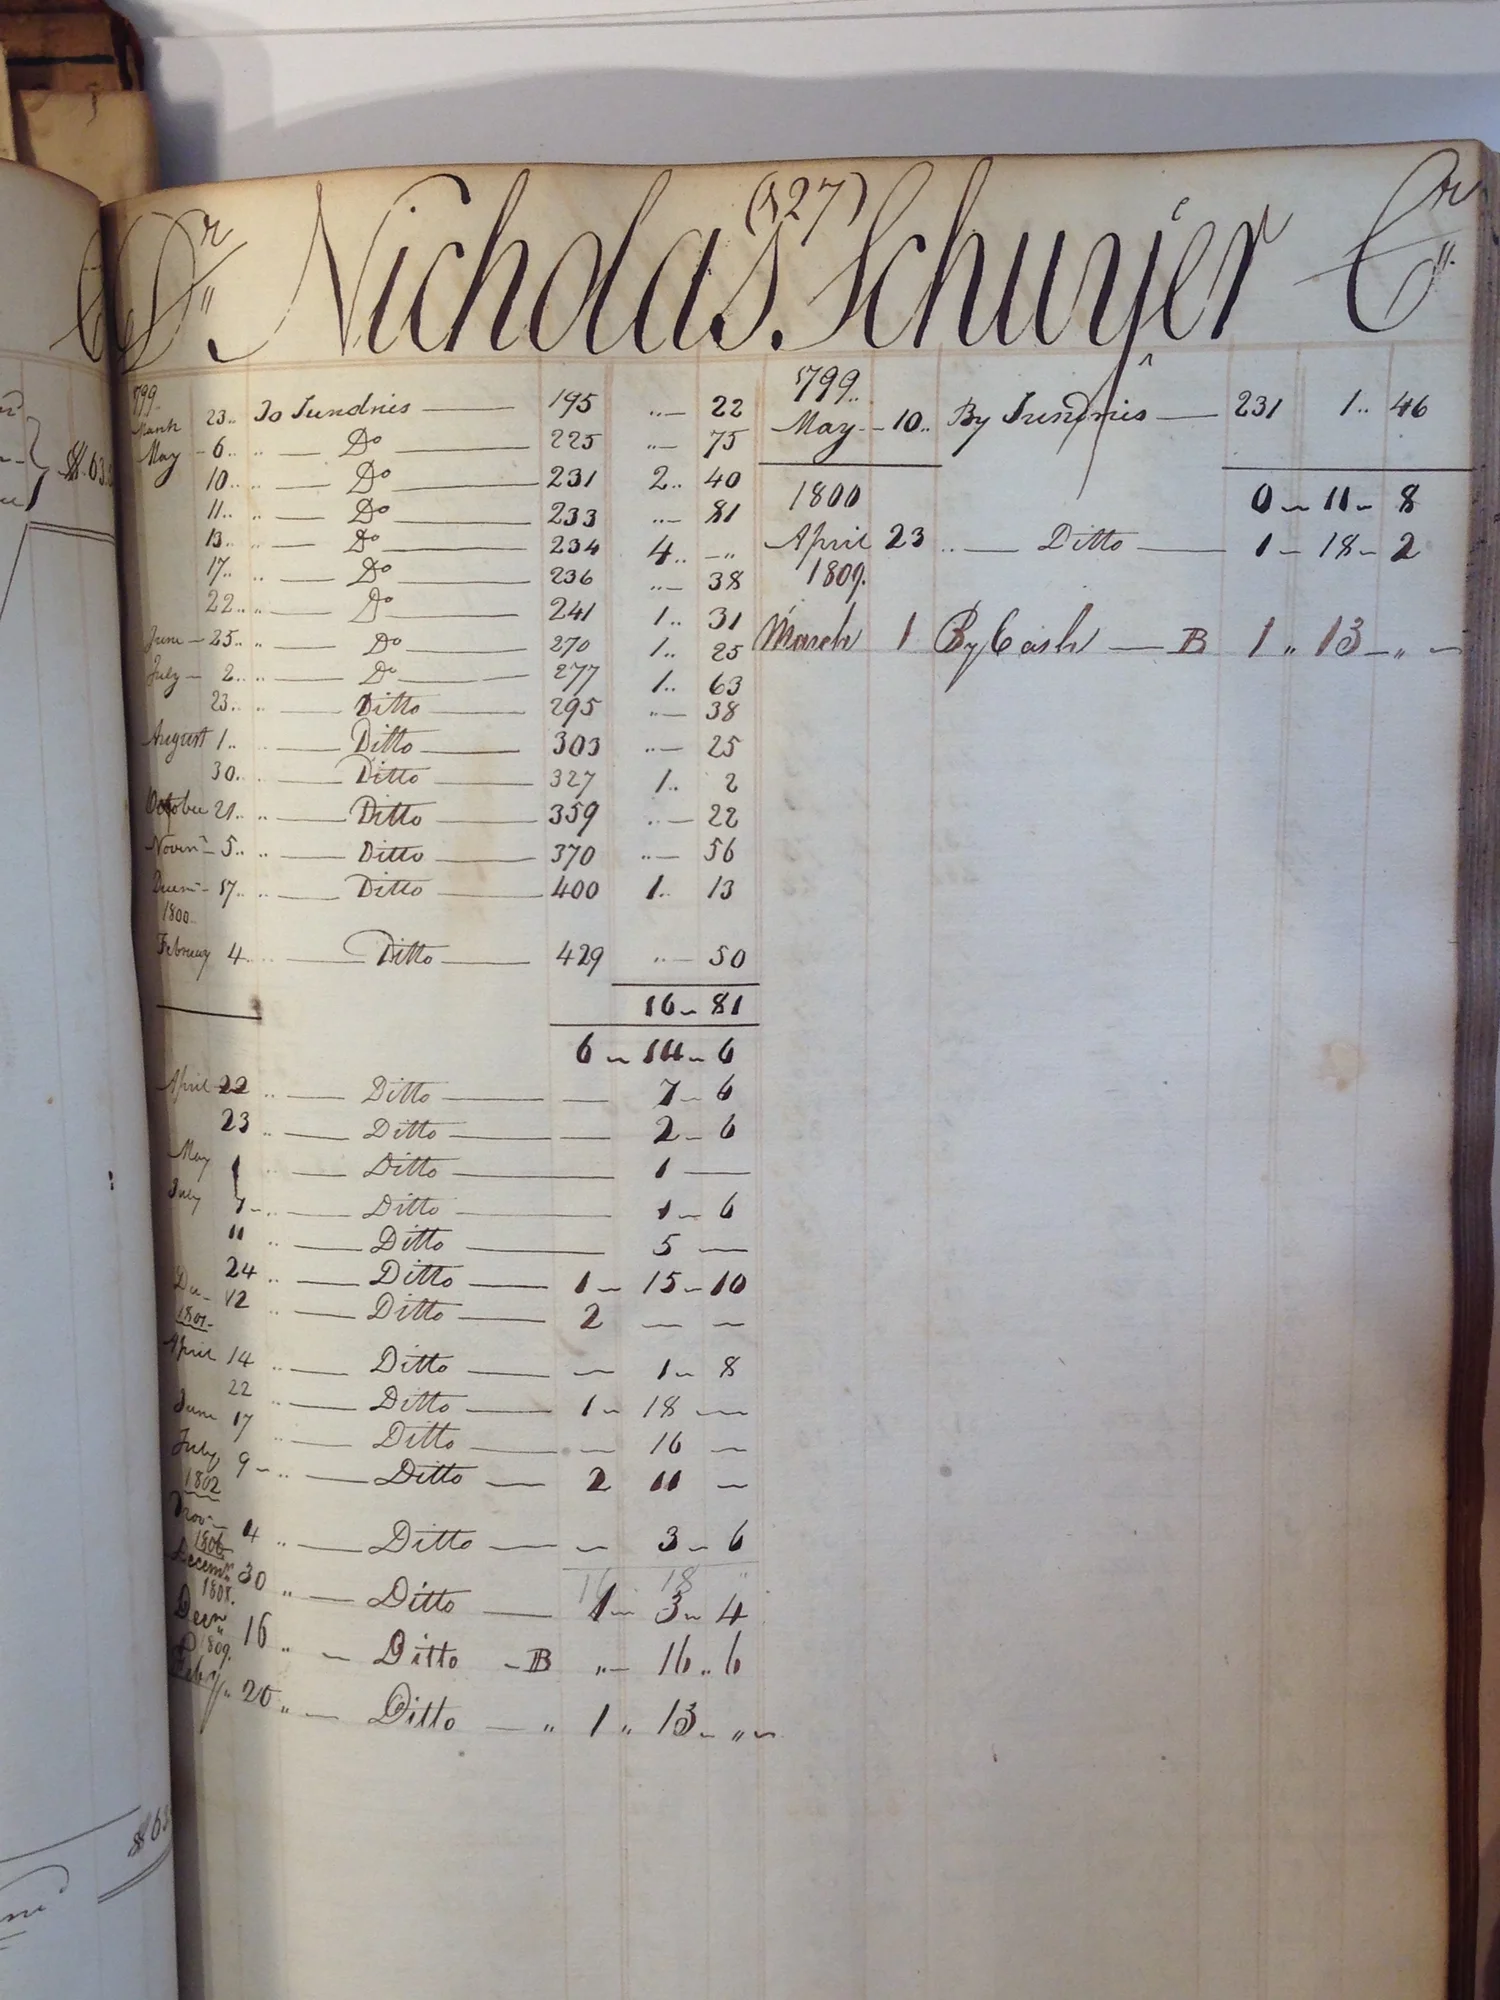 (127)
Dr Nicholas Schuyler Cr
1799
March 23.. To Sundries 195 ..— 22
May - 6.. .. Do 225 ..— 75
10.. .. Do 231 2.. 40
11.. .. Do 233 ..— 81
13.. .. Do 234 4.. —..
17.. .. Do 236 ..— 38
22.. .. Do 241 1.. 31
June - 25.. .. Do 270 1.. 25
July - 2.. .. Do 277 1.. 63
23.. .. Ditto 295 ..— 38
August 1.. .. Ditto 303 ..— 25
30.. .. Ditto 327 1.. 2
October 21.. .. Ditto 359 ..— 22
Novem - 5.. .. Ditto 370 ..— 56
Decem - 17.. .. Ditto 400 1.. 13
1800
February 4.. .. Ditto 429 ..— 50
16 - 81
6 - 14 - 6
April 22 .. Ditto — 7 - 6
23 .. Ditto — 2 - 6
May 1 .. Ditto 1 —
July 7 .. Ditto 1 - 6
11 .. Ditto 5 —
24 .. Ditto 1 - 15 - 10
Dec - 12 .. Ditto 2 — —
1801
April 14 .. Ditto — 1 - 8
22 .. Ditto 1 - 18 —
June 17 .. Ditto — 16 —
July 9 - .. Ditto 2 11 —
1802
Nov - 4 .. Ditto — 3 - 6
16 18 "
1806
Decemr 30 .. Ditto 1 - 3 - 4
1808.
Decm 16 .. Ditto - B " - 16 .. 6
1809.
Feby 20 .. Ditto — " 1 " 13 - " -
1799..
May - 10.. By Sundries 231 1.. 46
0 - 11 - 8
1800
April 23 .. Ditto 1 - 18 - 2
1809.
March 1 By Cash — B 1 " 13 - " -